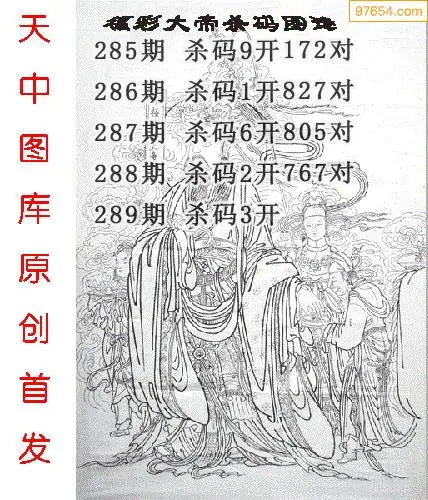 97654.com
福彩大帝杀码图迷
285期 杀码9开172对
286期 杀码1开827对
287期 杀码6开805对
288期 杀码2开767对
289期 杀码3开
天中图库原创首发